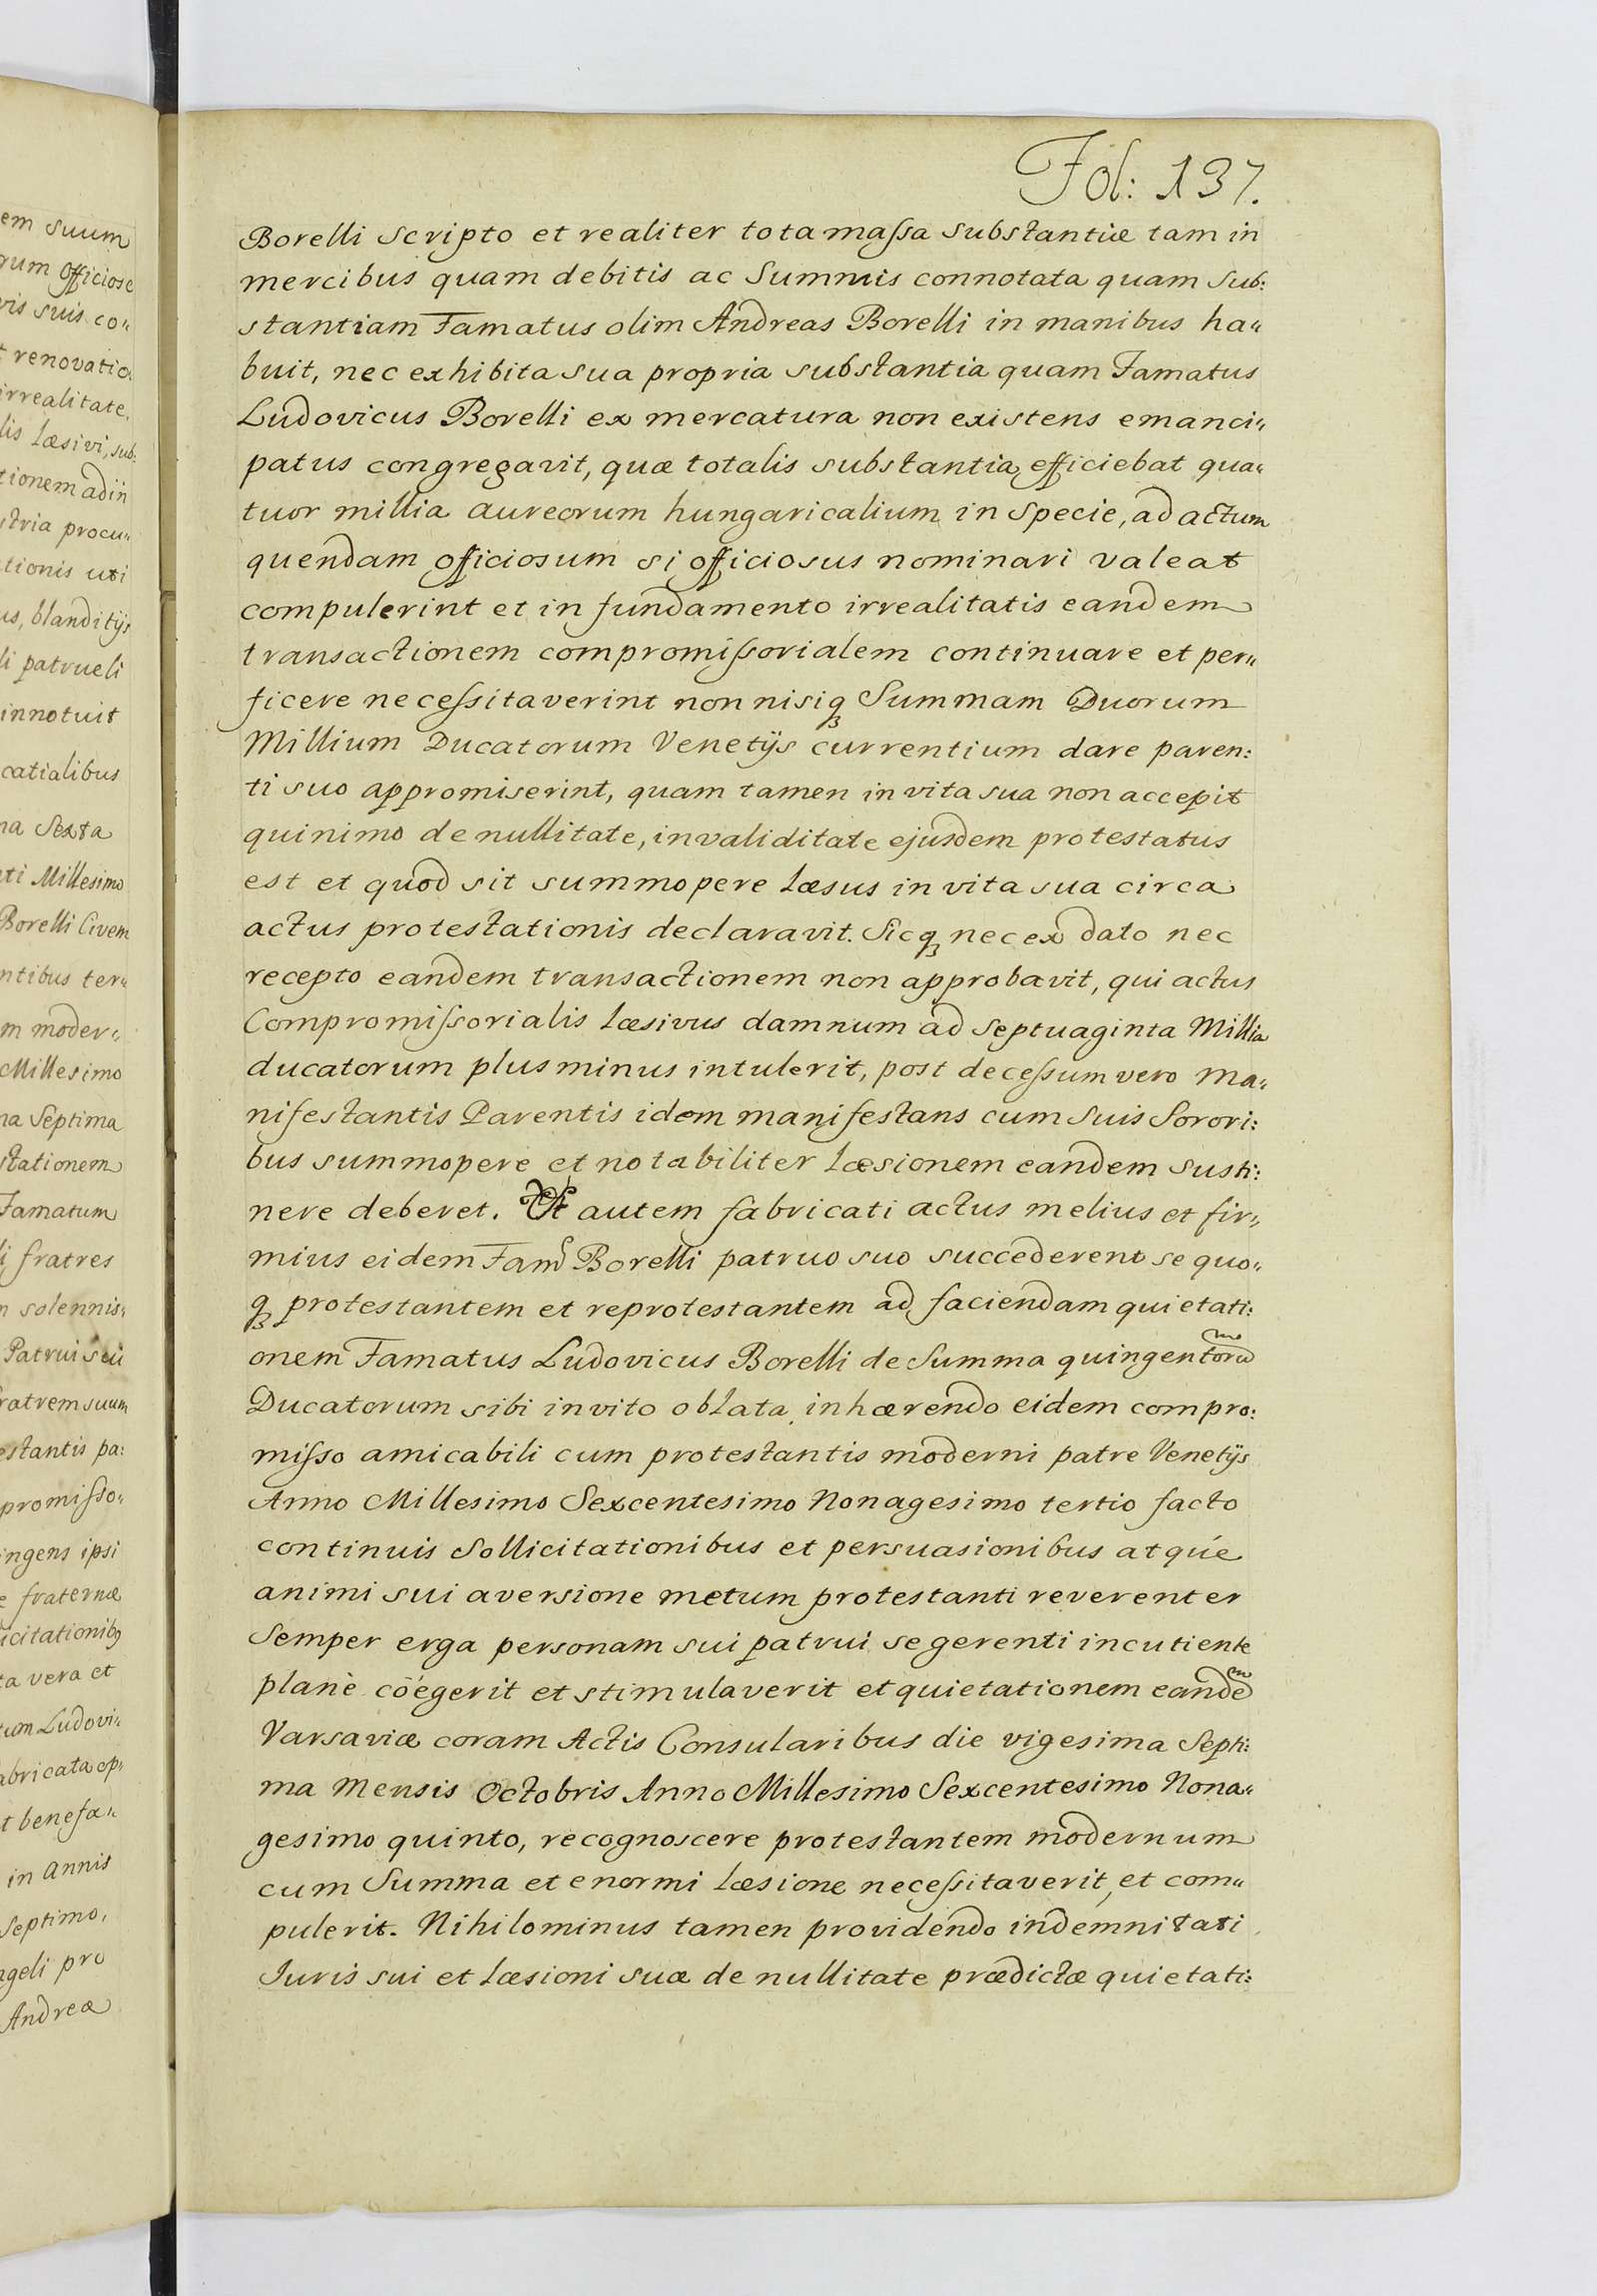 em suum
rum officiose
ris suis co„
renovatio
irrealitate.
lis læsivi, sub:
tionem adin
stria procu„
tionis uti
us, blanditijs
li patrueli
innotuit
catialibus
na Sexta
ti Millesimo
Borelli Civem
ntibus ter„
m moder„
Millesimo
na Septima
stationem
Famatum
i fratres
n solennis„
Patrui sui
ratrem suum
estantis pa:
promiſso„
ingens ipsi
e fraternæ
icitationibꝰ
ta vera et
tum Ludovi„
abricata op„
t benefa„
in Annis
Septimo,
ngeli pro
Andreæ
Fol: 137.
Borelli scripto et realiter tota maſsa substantiæ tam in
mercibus quam debitis ac Summis connotata quam sub:
stantiam Famatus olim Andreas Borelli in manibus ha„
buit, nec exhibita sua propria substantia quam Famatus
Ludovicus Borelli ex mercatura non existens emanci„
patus congregavit, quæ totalis substantia efficiebat qua„
tuor millia aureorum hungaricalium in specie, ad actum
quendam officiosum si officiosus nominari valeat
compulerint et in fundamento irrealitatis eandem
transactionem compromiſsorialem continuare et per„
ficere neceſsitaverint non nisiqꝫ Summam Duorum
Millium Ducatorum Venetijs currentium dare paren:
ti suo appromiserint, quam tamen in vita sua non accepit
quinimo de nullitate, invaliditate ejusdem protestatus
est et quod sit summopere læsus in vita sua circa
actus protestationis declaravit. Sicqꝫ nec ex dato nec
recepto eandem transactionem non approbavit, qui actus
Compromiſsorialis læsivus damnum ad septuaginta Millia
ducatorum plus minus intulerit, post deceſsum vero ma„
nifestantis Parentis idem manifestans cum suis Sorori:
bus summopere et notabiliter læsionem eandem susti:
nere deberet. Ut autem fabricati actus melius et fir„
mius eidem Famo Borelli patruo suo succederent se quo„
qꝫ protestantem et reprotestantem ad faciendam quietati:
onem Famatus Ludovicus Borelli de Summa quingentorum
Ducatorum sibi invito oblata inhærendo eidem compro:
miſso amicabili cum protestantis moderni patre Venetijs
Anno Millesimo Sexcentesimo Nonagesimo tertio facto
continuis Sollicitationibus et persuasionibus atque
animi sui aversione metum protestanti reverenter
Semper erga personam sui patrui se gerenti incutiente
planè cöegerit et stimulaverit et quietationem eandem
Varsaviæ coram Actis Consularibus die vigesima Septi:
ma Mensis Octobris Anno Millesimo Sexcentesimo Nona„
gesimo quinto, recognoscere protestantem modernum
cum Summa et enormi læsione neceſsitaverit, et com„
pulerit. Nihilominus tamen providendo indemnitati
Juris sui et læsioni suæ de nullitate prædictæ quietati: